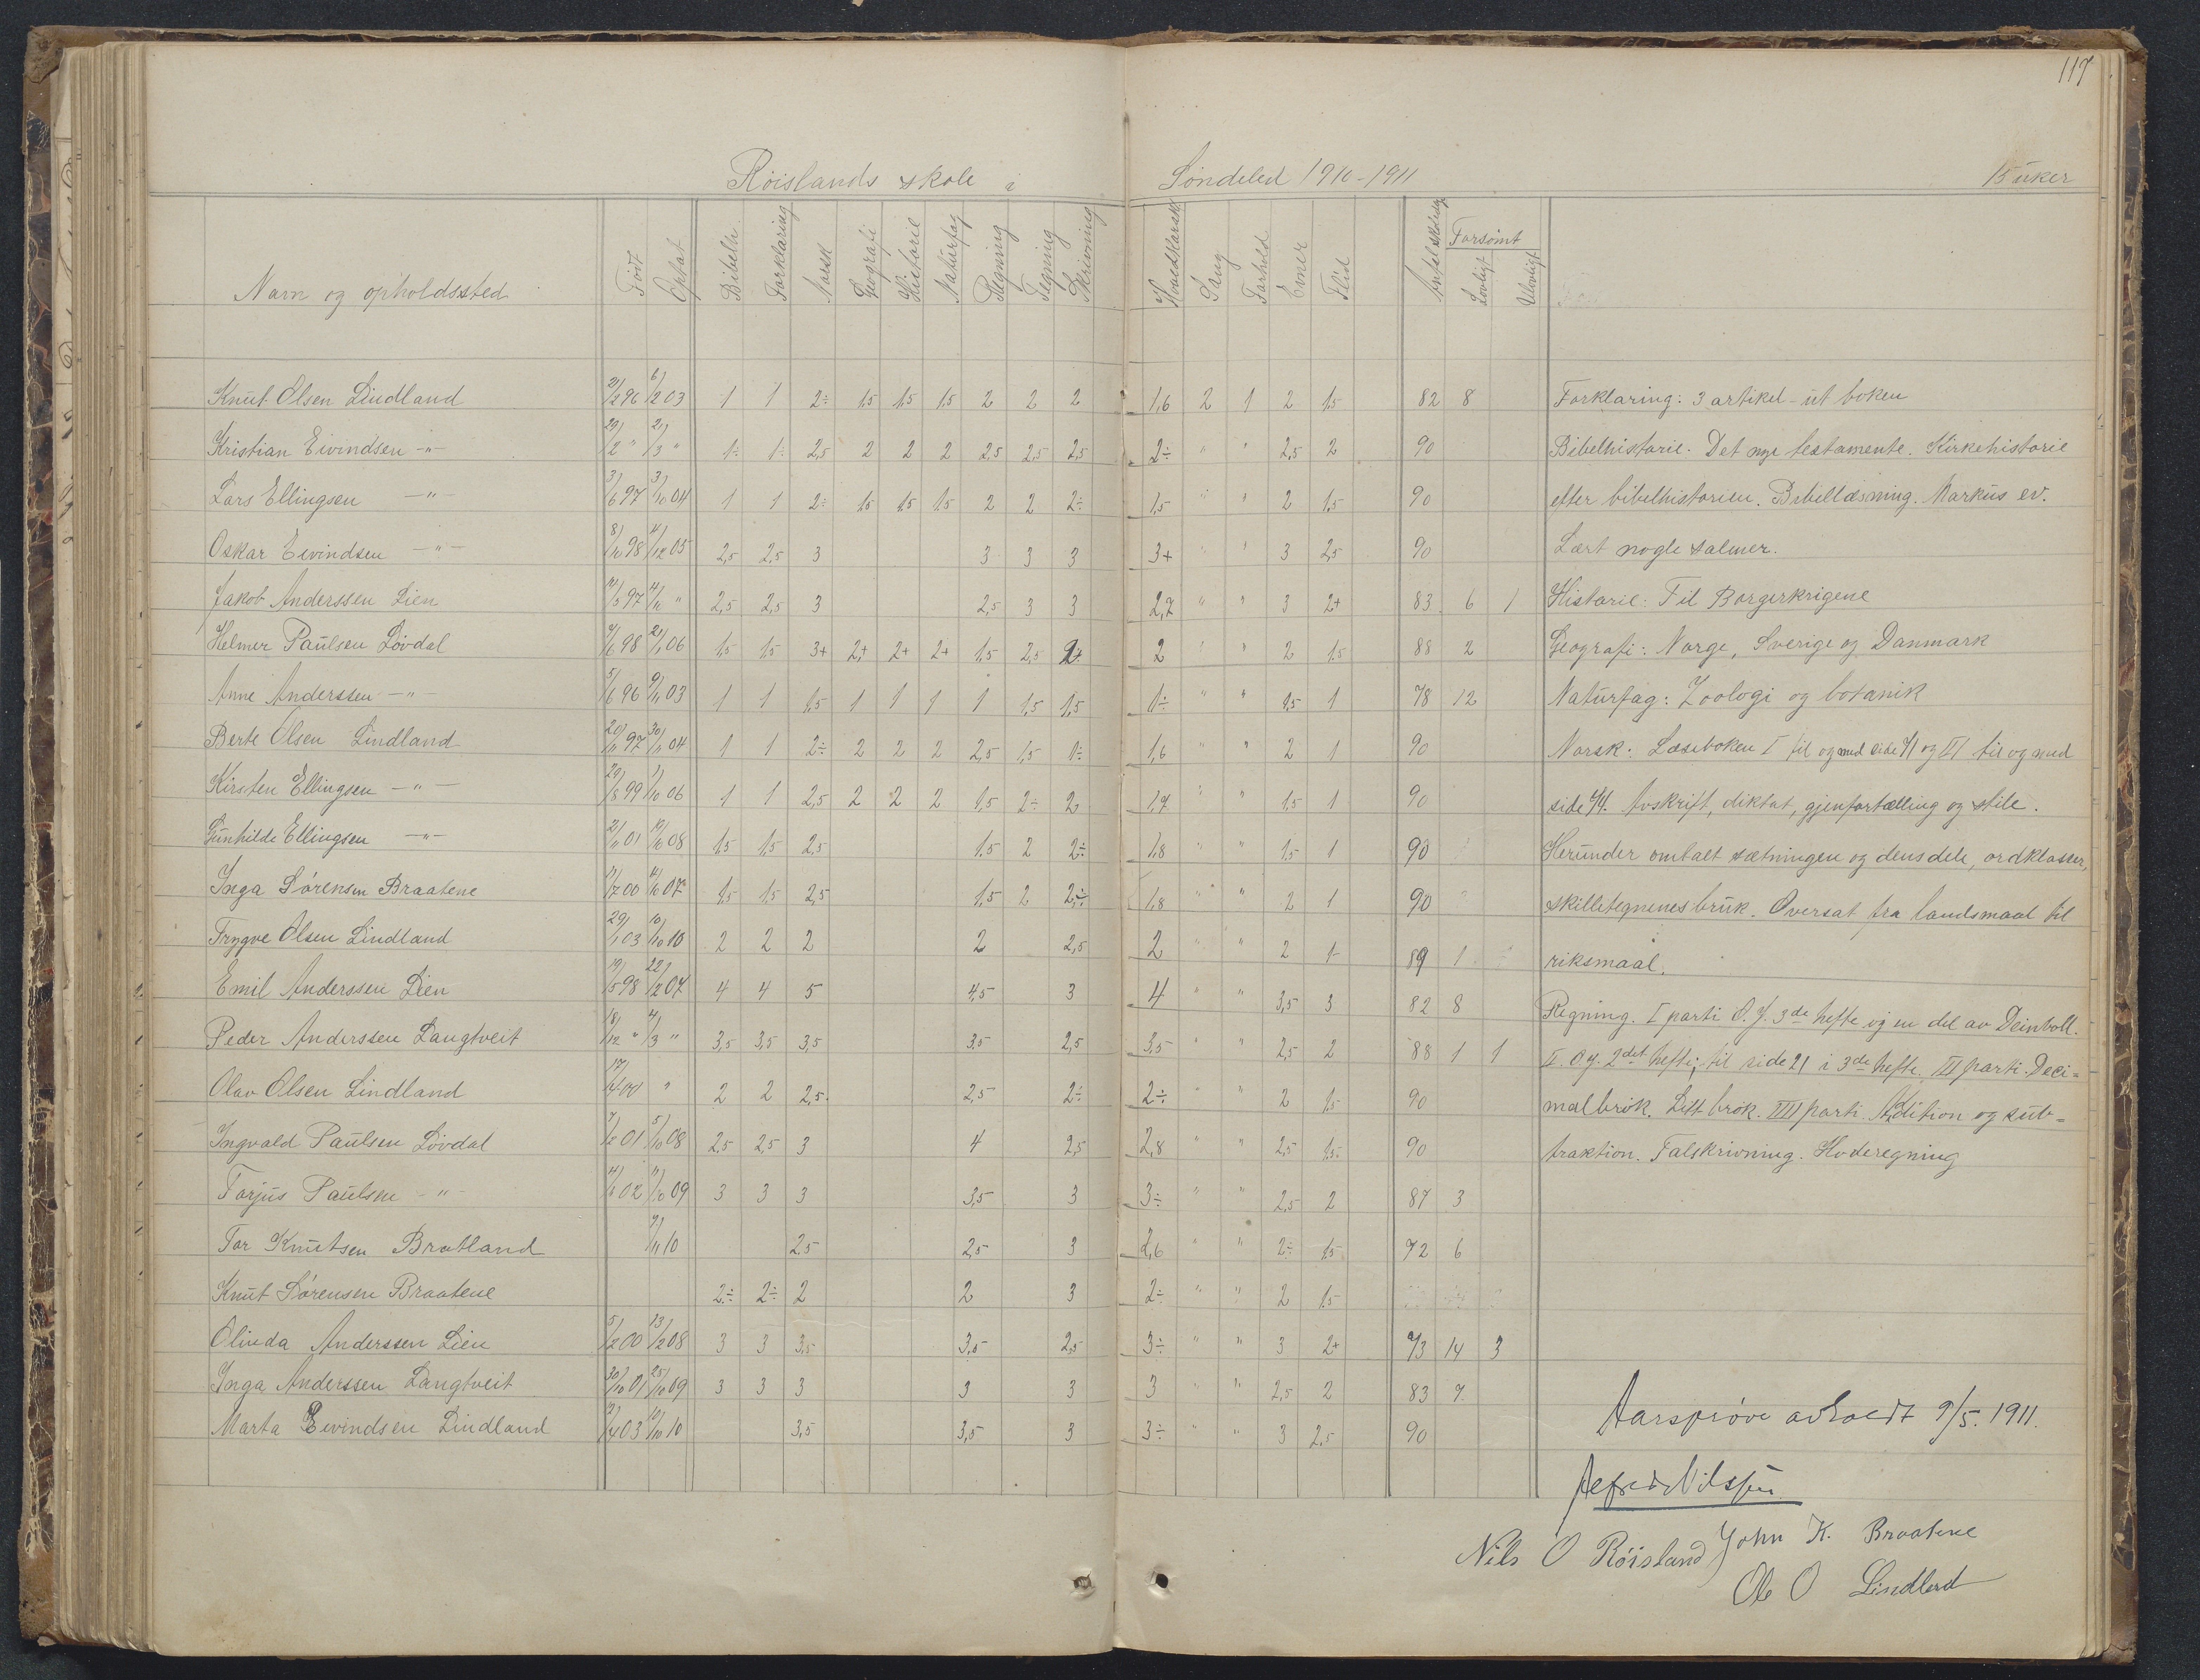 117
Röislands skole i Söndeled 1910-1911 15 uker
Navn og opholdssted Född Optat Bibelh. Forklaring Norsk Geografi Historie Naturfag Regning Tegning Skrivning Hovedkarakt. Sang Forhold Evner Flid Antal skoledage Forsömt Lovligt Ulovligt
Knut Olsen Lindland 2/2 96 6/2 03 1 1 2÷ 1,5 1,5 1,5 2 2 2 1,6 2 1 2 1,5 82 8
Kristian Eivindsen -"- 29/2 " 21/3 " 1÷ 1÷ 2,5 2 2 2 2,5 2,5 2,5 2÷ " " 2,5 2 90
Lars Ellingsen -"- 3/6 97 3/10 04 1 1 2÷ 1,5 1,5 1,5 2 2 2÷ 1,5 " " 2 1,5 90
Oskar Eivindsen -"- 8/10 98 4/12 05 2,5 2,5 3 3 3 3 3+ " " 3 2,5 90
Jakob Anderssen Lien 97 " 2,5 2,5 3 2,5 3 3 2,7 " " 3 2+ 83 6 1
Helmer Paulsen Lövdal 98 06 1,5 1,5 3+ 2+ 2+ 2+ 1,5 2,5 2+ 2 " " 2 1,5 88 2
Anne Anderssen -"- 5/6 96 9/11 03 1 1 1,5 1 1 1 1 1,5 1,5 1÷ " " 1,5 1 78 12
Berte Olsen Lindland 20/11 97 30/11 04 1 1 2÷ 2 2 2 2,5 1,5 1÷ 1,6 " " 2 1 90
Kirsten Ellingsen -"- 29/8 99 1/10 06 1 1 2,5 2 2 2 1,5 2÷ 2 1,7 " " 1,5 1 90
Gunhilde Ellingsen -"- 2/11 01 19/10 08 1,5 1,5 2,5 1,5 2 2÷ 1,8 " " 1,5 1 90
Inga Sörensen Braatene 11/7 00 4/10 07 1,5 1,5 2,5 1,5 2 2÷ 1,8 " " 2 1 90
Trygve Olsen Lindland 29/1 03 10/10 10 2 2 2 2 2,5 2 " " 2 1- 89 1
Emil Anderssen Lien 19/5 98 22/12 07 4 4 5 4,5 3 4 " " 3,5 3 82 8
Peder Anderssen Langtveit 18/12 " 4/3 " 3,5 3,5 3,5 3,5 2,5 3,5 " " 2,5 2 88 1 1
Olav Olsen Lindland 00 " 2 2 2,5 2,5 2÷ 2÷ " " 2 1,5 90
Ingvald Paulsen Lövdal 7/2 01 5/10 08 2,5 2,5 3 4 2,5 2,8 " " 2,5 1,5 90
Torjus Paulsen -"- 02 11/10 09 3 3 3 3,5 3 3÷ " " 2,5 2 87 3
Tor Knutsen Bratland 9/11 10 2,5 2,5 3 2,6 " " 2÷ 1,5 72 6
Knut Sörensen Braatene 2÷ 2÷ 2 2 3 2÷ " " 2 1,5
Olinda Anderssen Lien 5/12 00 13/2 08 3 3 3,5 3,5 2,5 3÷ " " 3 2+ 73 14 3
Inga Anderssen Langtveit 30/10 01 25/10 09 3 3 3 3 3 3 " " 2,5 2 83 7
Marta Eivindsen Lindland 2/4 03 10/10 10 3,5 3,5 3 3÷ " " 3 2,5 90
Forklaring: 3 artikel - ut boken
Bibelhistorie. Det nye testamente. Kirkehistorie
efter bibelhistorien. Bibellæsning. Markus ev.
Lært nogle salmer.
Historie: Til Borgerkrigene
Geografi: Norge, Sverige og Danmark
Naturfag: Zoologi og botanik
Norsk: Læseboken I til og med side 71 og II til og med
side 74. Avskrift, diktat, gjenfortælling og stile.
Herunder omtalt sætningen og dens dele, ordklasser,
skilletegnenes bruk. Oversat fra landsmaal til
riksmaal.
Regning. I parti O. J. 3de hefte og en del av Deinboll.
II. O. J. 2det hefte; til side 21 i 3de hefte. III parti. Deci=
malbrök. Litt brök. IIII parti. Addition og sub=
traktion. Talskrivning. Hoderegning
Aarspröve avholdt 9/5. 1911.
Alfred Nilssen
Nils O Röisland John K. Braatene
Ole O Lindland